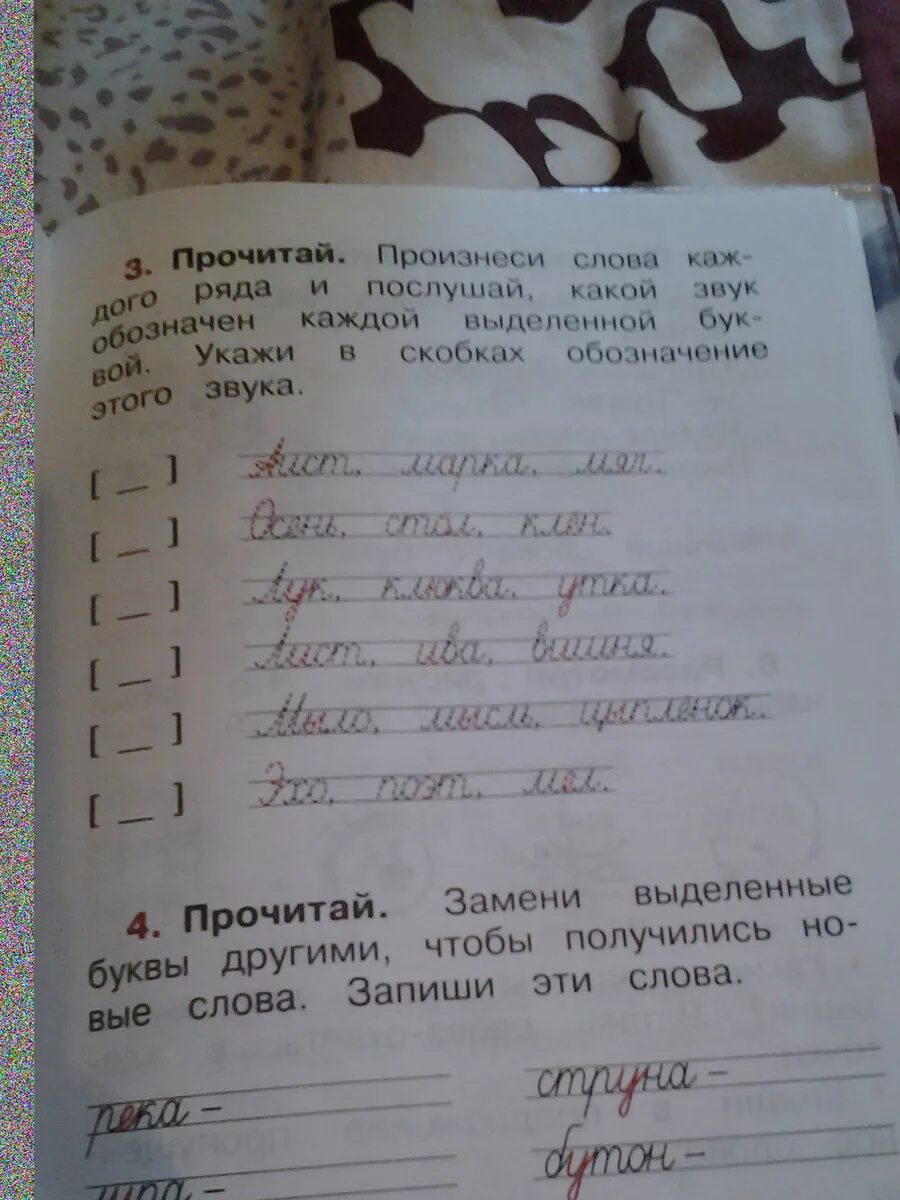 3. Прочитай. Произнеси слова каж-
дого ряда и послушай, какой звук
обозначен каждой выделенной бук-
вой. Укажи в скобках обозначение
этого звука.
[ _ ] Аист, марка, мяч.
[ _ ] Осень, стол, клён.
[ _ ] Лук, клюква, утка.
[ _ ] Лист, ива, вишня.
[ _ ] Мыло, мысль, цыпленок.
[ _ ] Эхо, поэт, мел.
4. Прочитай. Замени выделенные
буквы другими, чтобы получились но-
вые слова. Запиши эти слова.
река – струна –
бутон –